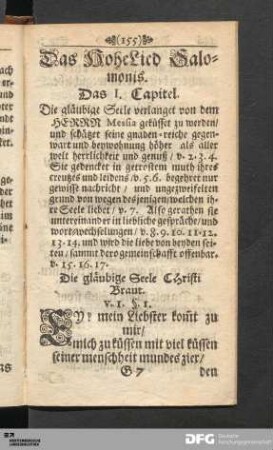 (155)
Das HoheLied Salo-
monis.
Das I. Capitel.
Die gläubige Seele verlanget von dem
HERRN Messia geküsset zu werden/
und schätzet seine gnaden-reiche gegen-
wart und beywohnung höher als aller
welt herrlichkeit und genuß/ v. 2. 3. 4.
Sie gedencket in getrostem muth ihres
creutzes und leidens/ v. 5. 6. begehret nur
gewisse nachricht/ und ungezweifelten
grund von wegen desjenigen/ welchen ih-
re Seele liebet/ v. 7. Also gerathen sie
untereinander in liebliche gespräche/ und
wortswechselungen/ v. 8. 9. 10. 11. 12.
13. 14. und wird die liebe von beyden sei-
ten/ sammt dero gemeinschafft offenbar.
v. 15. 16. 17.
Die gläubige Seele CHristi
Braut.
v. 1. §. 1.
mein Liebster kom̃t zu
mir/
mich zu küssen mit viel küssen
seiner menschheit mundes zier/
G 7 den
DFG
Deutsche
Forschungsgemeinschaft